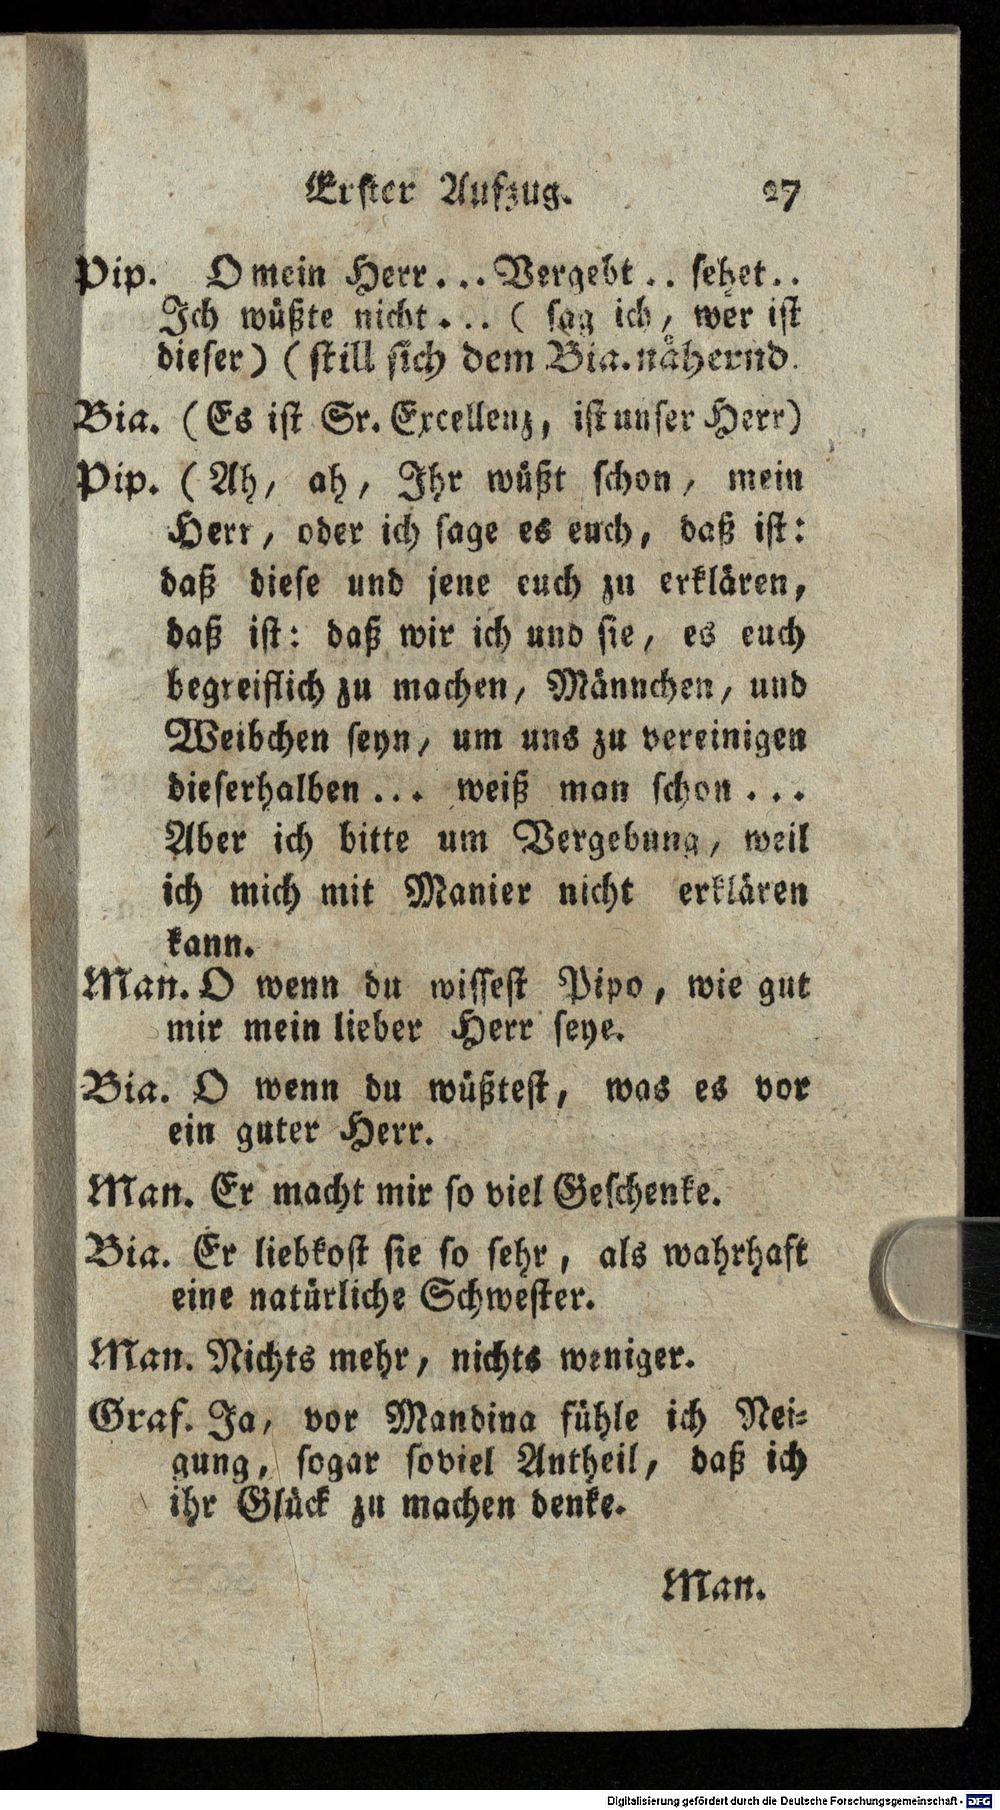 Erster Aufzug. 27
Pip. O mein Herr... Vergebt.. sehet..
Ich wüßte nicht... ( sag ich, wer ist
dieser) (still sich dem Bia. nähernd.
Bia. (Es ist Sr. Excellenz, ist unser Herr)
Pip. (Ah, ah, Ihr wüßt schon, mein
Herr, oder ich sage es euch, daß ist:
daß diese und jene euch zu erklären,
daß ist: daß wir ich und sie, es euch
begreiflich zu machen, Männchen, und
Weibchen seyn, um uns zu vereinigen
dieserhalben... weiß man schon...
Aber ich bitte um Vergebung, weil
ich mich mit Manier nicht erklären
kann.
Man. O wenn du wissest Pipo, wie gut
mir mein lieber Herr seye.
Bia. O wenn du wüßtest, was es vor
ein guter Herr.
Man. Er macht mir so viel Geschenke.
Bia. Er liebkost sie so sehr, als wahrhaft
eine natürliche Schwester.
Man. Nichts mehr, nichts weniger.
Graf. Ja, vor Mandina fühle ich Nei-
gung, sogar soviel Antheil, daß ich
ihr Glück zu machen denke.
Man.
Digitalisierung gefördert durch die Deutsche Forschungsgemeinschaft - DFG